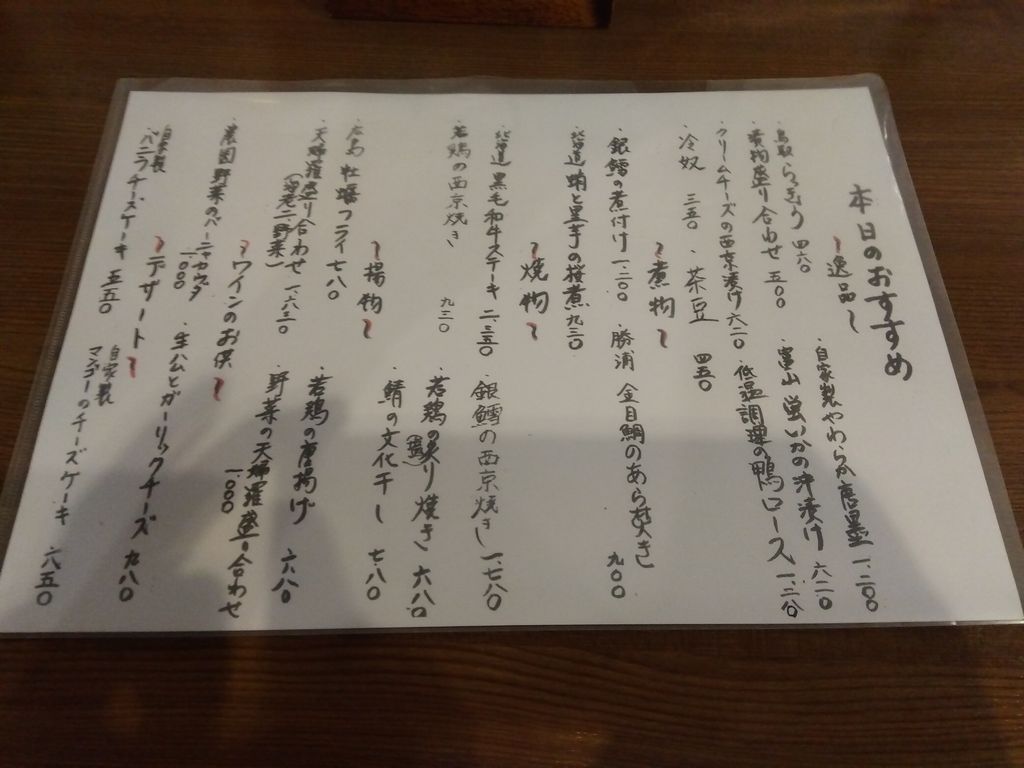 本日のおすすめ
~逸品~
・鳥取 らっきょう 四六〇
・自家製やわらか唐墨 一、二〇〇
・漬物盛り合わせ 五〇〇
・富山 蛍いかの沖漬け 六二〇
・クリームチーズの西京漬け 六二〇
・低温調理の鴨ロース 一、三〇
・冷奴 三五〇
・茶豆 四五〇
~煮物~
・銀鱈の煮付け 一、二〇〇
・勝浦 金目鯛のあら炊き 九〇〇
・北海道 蛸と里芋の 煮 九三〇
~焼物~
・北海道 黒毛和牛ステーキ 二、三五〇
・銀鱈の西京焼き 一、七八〇
・若鶏の西京焼き 九三〇
・若鶏の照り焼き(塩) 六八〇
・鯖の文化干し 七八〇
~揚物~
・広島 牡蠣フライ 七八〇
・若鶏の唐揚げ 六八〇
・天婦羅盛り合わせ 一、六三〇
(海老二、野菜)
・野菜の天婦羅盛り合わせ 一、〇〇〇
~ワインのお供~
・農園野菜のバーニャカウダ 一、〇〇〇
・生ハムとガーリックチーズ 九八〇
~デザート~
・自家製 バニラチーズケーキ 五五〇
・自家製 マンゴーのチーズケーキ 六五〇